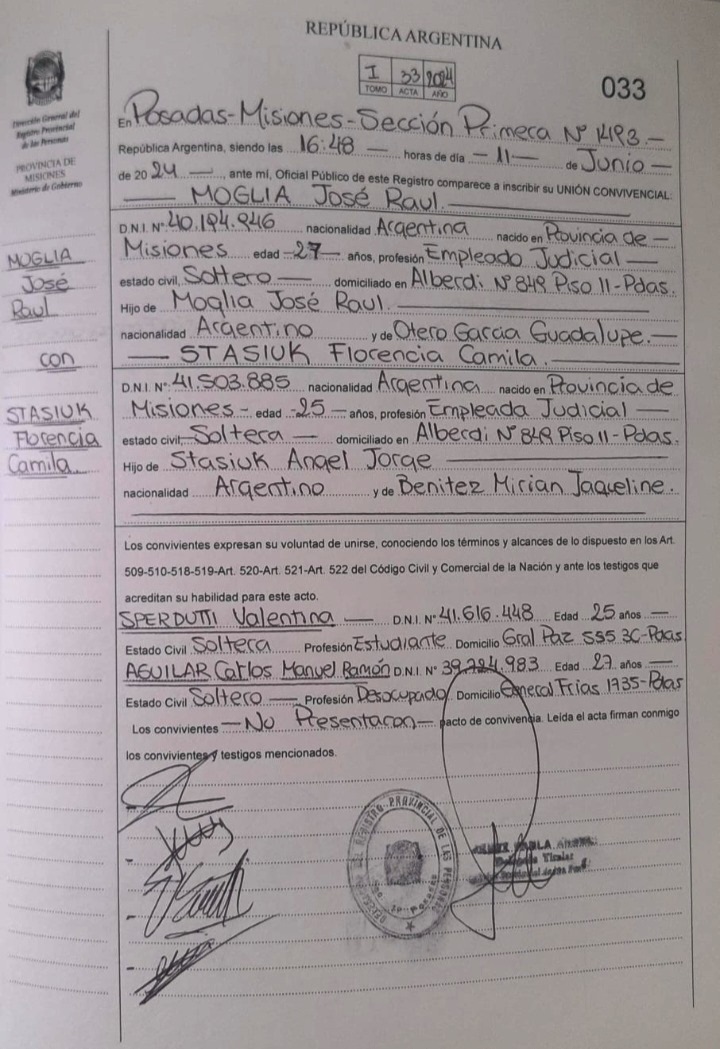 REPÚBLICA ARGENTINA
I 33 2024
TOMO ACTA AÑO
033
Dirección General del
Registro Provincial
de las Personas
PROVINCIA DE
MISIONES
Ministerio de Gobierno
En Posadas-Misiones-Sección Primera Nº 1493.-
República Argentina, siendo las 16:48 — horas de día -11- de Junio —
de 2024 —, ante mí, Oficial Público de este Registro comparece a inscribir su UNIÓN CONVIVENCIAL:
— MOGLIA José Raul. —
D.N.I. Nº 40.194.946 nacionalidad Argentina nacido en Provincia de —
Misiones edad -27- años, profesión Empleado Judicial —
estado civil, Soltero — domiciliado en Alberdi Nº 849 Piso 11-Pdas.
Hijo de Moglia José Raul. —
nacionalidad Argentino y de Otero Garcia Guadalupe. —
— STASIUK Florencia Camila. —
D.N.I. Nº 41.503.885 nacionalidad Argentina nacido en Provincia de
Misiones - edad -25- años, profesión Empleada Judicial —
estado civil, Soltera — domiciliado en Alberdi Nº 849 Piso 11-Pdas.
Hijo de Stasiuk Angel Jorge —
nacionalidad Argentino y de Benitez Mirian Jaqueline.
MOGLIA
José
Raul
con
STASIUK
Florencia
Camila.
Los convivientes expresan su voluntad de unirse, conociendo los términos y alcances de lo dispuesto en los Art.
509-510-518-519-Art. 520-Art. 521-Art. 522 del Código Civil y Comercial de la Nación y ante los testigos que
acreditan su habilidad para este acto.
SPERDUTTI Valentina — D.N.I. Nº 41.616.448 Edad 25 años —
Estado Civil Soltera Profesión Estudiante Domicilio Gral Paz 555 3C-Pdas
AGUILAR Carlos Manuel Ramón D.N.I. Nº 39.724.983 Edad 27 años —
Estado Civil Soltero — Profesión Desocupado Domicilio General Frias 1735-Pdas
Los convivientes — No Presentaron — pacto de convivencia. Leída el acta firman conmigo
los convivientes y testigos mencionados.
REGISTRO PROVINCIAL DE LAS PERSONAS
Titular